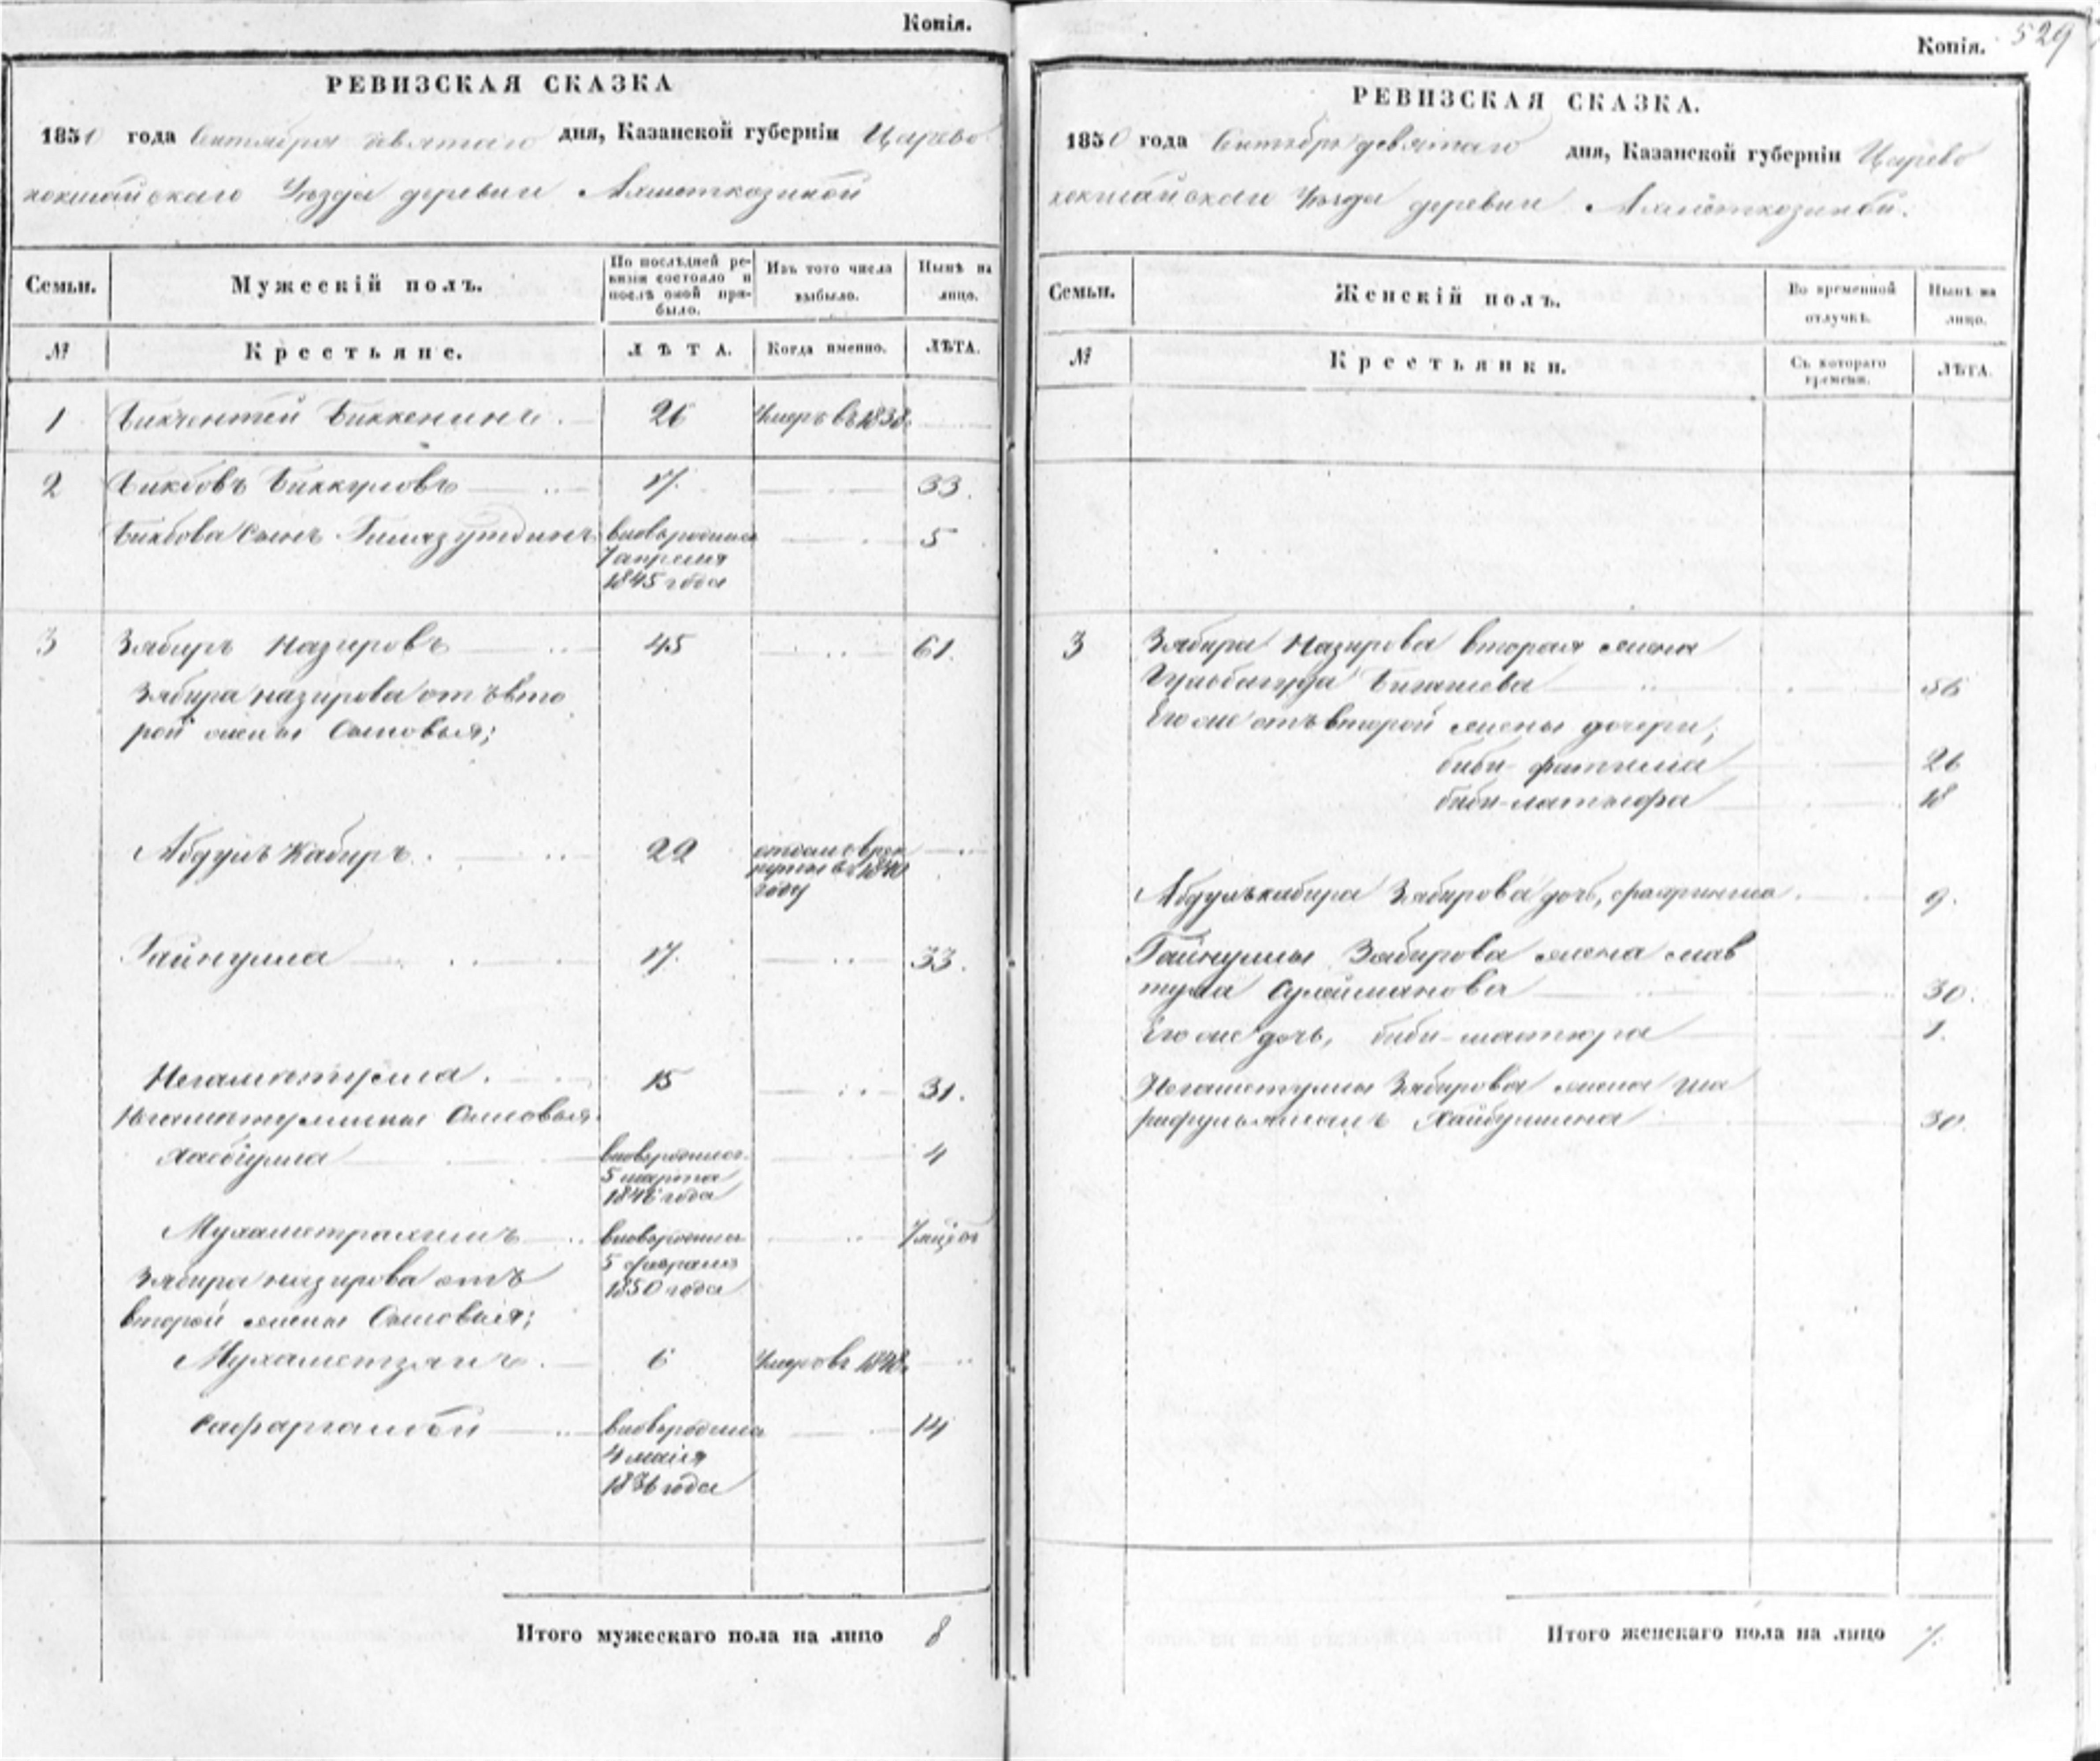 Копія.
РЕВИЗСКАЯ СКАЗКА
1850 года Сентября девятаго дня, Казанской губерніи Царево
кокшайскаго Уезда деревни Ахметкозиной
Семьи.
Мужескій полъ.
По послѣдней ре-
визіи состояло и
послѣ оной при-
было.
Изъ того числа
выбыло.
Нынѣ на
лицо.
№
Крестьяне.
ЛѢТА.
Когда именно.
ЛѢТА.
1 Бикчентей Биккенинъ 26 Умеръ въ 1838
2 Бикбовъ Биккуловъ 17 33
Бикбова сынъ Гилязутдинъ вновьродился 5
7 апреля
1845 года
3 Зябиръ Назировъ 45 61
Зябира Назирова отъ вто
рой жены Сыновья;
Абдулъ Кабиръ 29 отданъ в рек
руты въ 1840
году
Гайнулла 17 33
Негаметулла 15 31
Негаметуллины Сыновья
Хабибулла вновьродился 4
5 марта
1846 года
Мухаметрахимъ вновьродился 7 мцовъ
5 февраля
1850 года
Зябира Назирова отъ
второй жены Сыновья;
Мухаметзянъ 6 Умеръ въ 1848
Сафаргалей вновьродился 14
4 маія
1836 года
Итого мужескаго пола на лицо 8
529
Копія.
РЕВИЗСКАЯ СКАЗКА.
1850 года Сентября девятаго дня, Казанской губерніи Царево
кокшайскаго Уезда деревни Ахметкозиной.
Семьи.
Женскій полъ.
Во временной
отлучкѣ.
Нынѣ на
лицо.
№
Крестьянки.
Съ котораго
времени.
ЛѢТА.
3 Зябира Назирова вторая жена
Бигашева 56
Его же отъ второй жены дочери;
биби-фатима 26
биби-латыфа 18
Абдулъкабира Зябирова дочь, 9.
Гайнуллы Зябирова жена мав
тука Сулейманова 30.
Его же дочь, биби- 1.
Негаметуллы Зябирова жена Ша
рафулзямалъ Хайбуллина 30.
Итого женскаго пола на лицо 7.